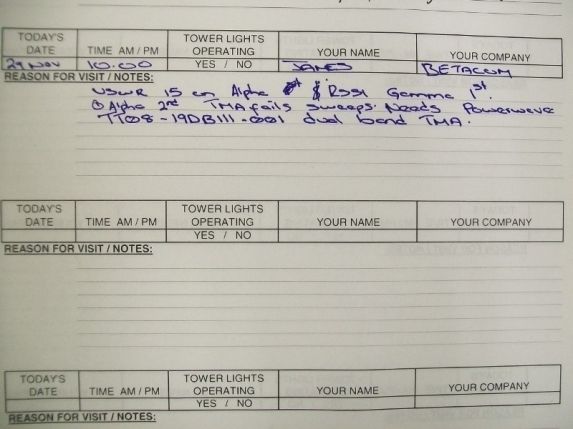 TODAY'S DATE TIME AM / PM TOWER LIGHTS OPERATING YES / NO YOUR NAME YOUR COMPANY
29 NOV 10:00 JAMES BETACOM
REASON FOR VISIT / NOTES:
VSWR 15 on Alpha & RSSI Gamma 1st.
Alpha 2nd TMA fails sweeps. Needs Powerwave
TT08-19DB111-001 dual band TMA.
TODAY'S DATE TIME AM / PM TOWER LIGHTS OPERATING YES / NO YOUR NAME YOUR COMPANY
REASON FOR VISIT / NOTES:
TODAY'S DATE TIME AM / PM TOWER LIGHTS OPERATING YES / NO YOUR NAME YOUR COMPANY
REASON FOR VISIT / NOTES: